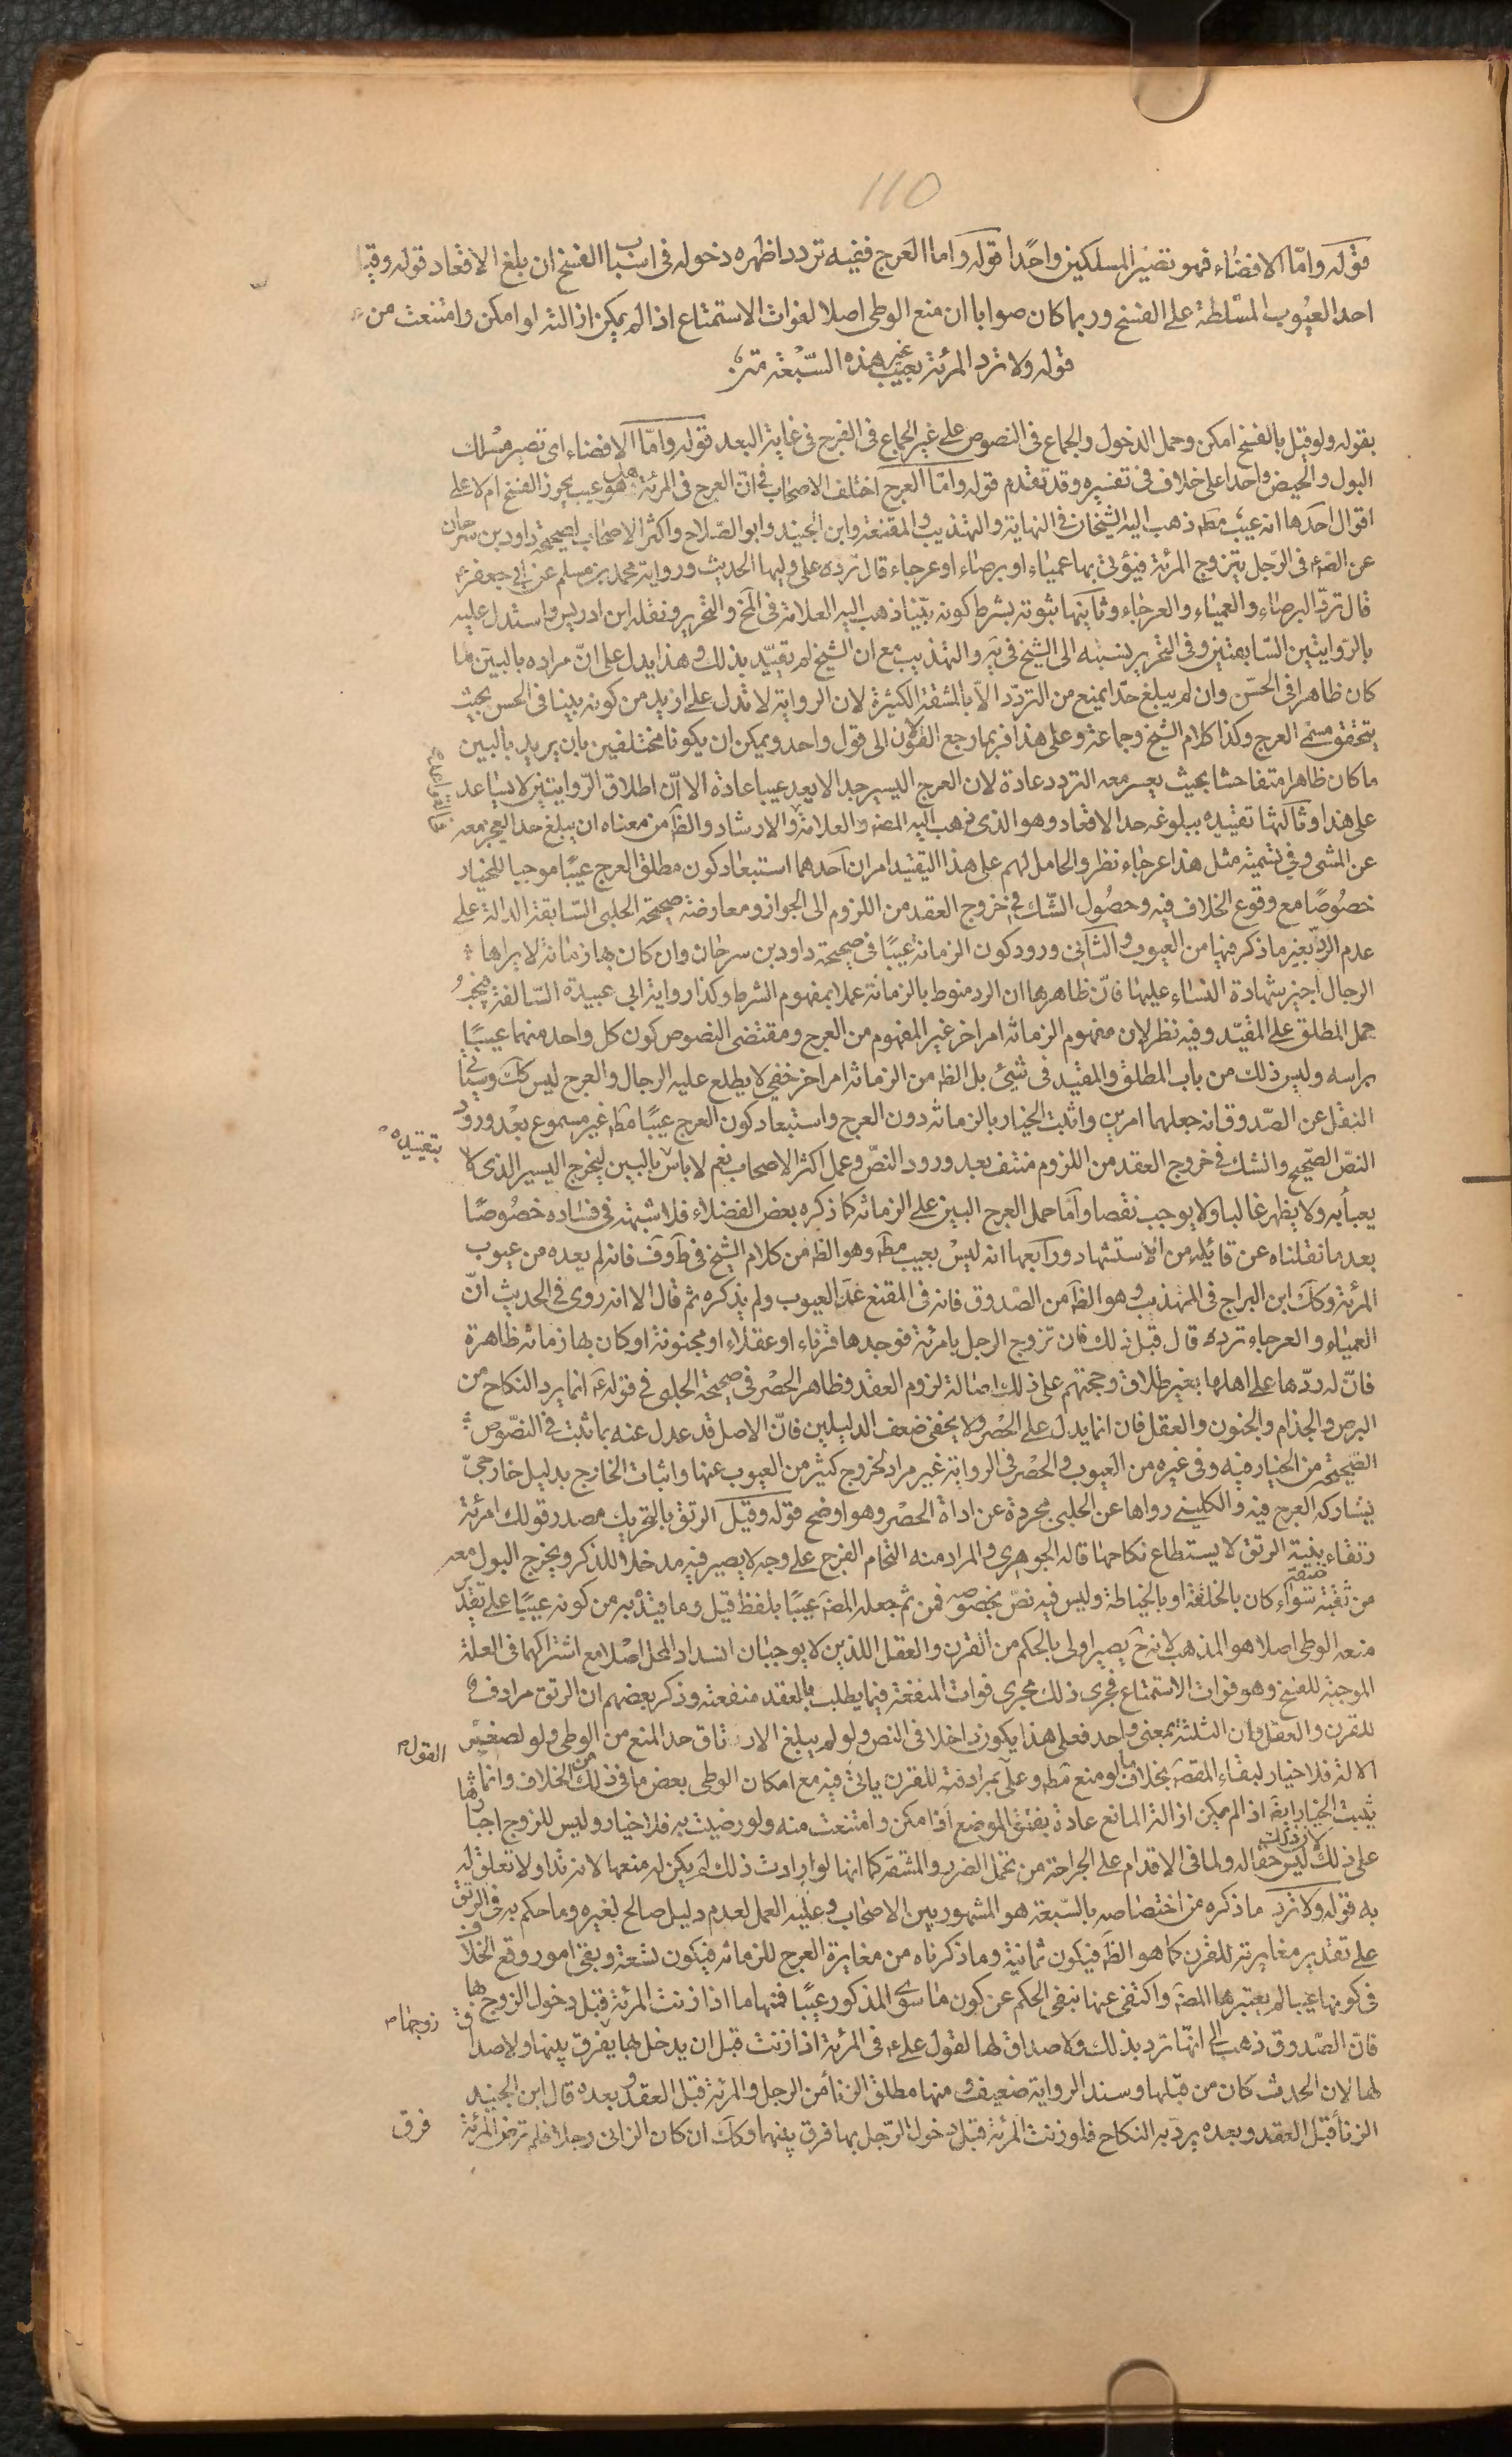 110
قوله واما الافضاء فهو تصير المسلكين واحدا قوله واما العرج ففيه تردد اظهره دخوله في اسباب الفسخ ان بلغ الاقعاد قوله وقيل
احد العيوب المسلطة على الفسخ وربما كان صوابا ان منع الوطى اصلا لفوات الاستمتاع اذا لم يمكن ازالته او امكن وامتنعت من
قوله ولا ترد المرئة بعيب غير هذه السبعة
بقوله ولو قيل بالفسخ امكن وحمل الدخول والجماع فى النصوص على غير الجماع فى الفرج فى غاية البعد قوله واما الافضاء اى تصير مسلك
البول والحيض واحدا على خلاف فى تفسيره وقد تقدم قوله واما العرج اختلف الاصحاب فى ان العرج فى المرئة هل هو عيب يجوز الفسخ ام لا على
اقوال احدها انه عيب مطه ذهب اليه الشيخان فى النهاية والتهذيب والمقنعة وابن الجنيد وابو الصلاح واكثر الاصحاب لصحيحة داود بن سرحان
عن الصه فى الرجل يتزوج المرئة فيؤتى بها عمياء او برصاء او عرجاء قال ترده على وليها الحديث ورواية محمد بن مسلم عن ابى جعفر ع
قال ترد البرصاء والعمياء والعرجاء وثانيها ثبوته بشرط كونه بينا ذهب اليه العلامة فى المخ والتحرير ونقله ابن ادريس واستدل عليه
بالروايتين السابقتين وفى التحرير نسبه الى الشيخ فى يه والتهذيب مع ان الشيخ لم يقيد بذلك وهذا يدل على ان مراده بالبين ما
كان ظاهرا فى الحس وان لم يبلغ حدا يمنع من التردد الا بالمشقة الكثيرة لان الرواية لا تدل على ازيد من كونه بينا فى الحس بحيث
يتحقق مسمى العرج وكذا كلام الشيخ وجماعة وعلى هذا فربما رجع القولان الى قول واحد ويمكن ان يكونا مختلفين بان يريد بالبين
ما كان ظاهرا متفاحشا بحيث يعسر معه التردد عادة لان العرج اليسير جدا لا يعد عيبا عادة الا ان اطلاق الروايتين لا يساعد
على هذا وثالثها تقييده ببلوغه حد الاقعاد وهو الذى ذهب اليه المصه والعلامة والارشاد والظه من معناه ان يبلغ حد العجز معه
عن المشى وفى تسميته مثل هذا عرجاء نظر والحامل لهم على هذا التقييد امران احدهما استبعاد كون مطلق العرج عيبا موجبا للخيار
خصوصا مع وقوع الخلاف فيه وحصول الشك فى خروج العقد من اللزوم الى الجواز ومعارضة صحيحة الحلبى السابقة الدالة على
عدم الرد بغير ما ذكر فيها من العيوب والثانى ورود كون الزمانة عيبا فى صحيحة داود بن سرحان وان كان بها زمانة لا يراها
الرجال اجيز شهادة النساء عليها فان ظاهرها ان الرد منوط بالزمانة عملا بمفهوم الشرط وكذا رواية ابى عبيدة السالفة فيجب
حمل المطلق على المقيد وفيه نظر لان مفهوم الزمانة امر اخر غير المفهوم من العرج ومقتضى النصوص كون كل واحد منهما عيبا
براسه وليس ذلك من باب المطلق والمقيد فى شيئ بل الظه من الزمانة امر اخر خفى لا يطلع عليه الرجال والعرج ليس كك وسياتى
النقل عن الصدوق انه جعلهما امرين واثبت الخيار بالزمانة دون العرج واستبعاد كون العرج عيبا مطه غير مسموع بعد ورود
بتقييده
النص الصحيح والشك فى خروج العقد من اللزوم منتف بعد ورود النص وعمل اكثر الاصحاب نعم لا باس بالبين ليخرج اليسير الذى لا
يعبأ به ولا يظهر غالبا ولا يوجب نقصا واما حمل العرج البين على الزمانة كما ذكره بعض الفضلاء فلا شبهة فى فساده خصوصا
بعد ما نقلناه عن قائله من الاستشهاد ورابعها انه ليس بعيب مطه وهو الظه من كلام الشيخ فى ط وف فانه لم يعده من عيوب
المرئة وكك ابن البراج فى المهذب وهو الظه من الصدوق فانه فى المقنع عد العيوب ولم يذكره ثم قال الا انه روى فى الحديث ان
العمياء والعرجاء ترده قال قبل ذلك فان تزوج الرجل بامرئة فوجدها قرناء او عفلاء او مجنونة او كان بها زمانة ظاهرة
فان له ردها على اهلها بغير طلاق وحجتهم على ذلك اصالة لزوم العقد وظاهر الحصر فى صحيحة الحلبى فى قوله ع انما يرد النكاح من
البرص والجذام والجنون والعفل فان انما يدل على الحصر ولا يخفى ضعف الدليلين فان الاصل قد عدل عنه بما ثبت فى النصوص
الصحيحة من الخيار فيه وفى غيره من العيوب والحصر فى الرواية غير مراد لخروج كثير من العيوب عنها واثبات الخارج بدليل خارجى
يشاركه العرج فيه والكلينى رواها عن الحلبى مجردة عن اداة الحصر وهو اوضح قوله وقيل الرتق بالتحريك مصدر قولك امرئة
رتقاء بينة الرتق لا يستطاع نكاحها قاله الجوهرى والمراد منه التحام الفرج على وجه لا يصير فيه مدخلا للذكر ويخرج البول معه
من ثقبة ضيقة سواء كان بالخلقة او بالخياطة وليس فيه نص بخصوصه فمن ثم جعله المصه عيبا بلفظ قيل وما قيد به من كونه عيبا على تقدير
منعه الوطى اصلا هو المذهب لانه ح يصير اولى بالحكم من القرن والعفل اللذين لا يوجبان انسداد المحل اصلا مع اشتراكهما فى العلة
الموجبة للفسخ وهو فوات الاستمتاع فجرى ذلك مجرى فوات المنفعة فيما يطلب بالعقد منفعته وذكر بعضهم ان الرتق مرادف
للقرن والعفل وان الثلثة بمعنى واحد فعلى هذا يكون داخلا فى النص ولو لم يبلغ الارتتاق حد المنع من الوطى ولو لصغير
القول
الالة فلا خيار لبقاء المقصه بخلاف ما لو منع مطه وعلى بمرادفته للقرن ياتى فيه مع امكان الوطى بعض ما فى ذلك من الخلاف وانما
يثبت الخيار ايضه اذا لم يمكن ازالة المانع عادة بفتق الموضع اذا امكن وامتنعت منه ولو رضيت به فلا خيار وليس للزوج اجبارها
على ذلك لان ذلك ليس حقا له ولما فى الاقدام على الجراحة من تحمل الضرر والمشقة كما انها لو ارادت ذلك لم يكن له منعها لانه تداو لا تعلق له
به قوله ولا ترد ما ذكره من اختصاصه بالسبعة هو المشهور بين الاصحاب وعليه العمل لعدم دليل صالح لغيره وما حكم به فى الرتق
على تقدير مغايرته للقرن كما هو الظه فيكون ثمانية وما ذكرناه من مغايرة العرج للزمانة فيكون تسعة وبقى امور وقع الخلاف
فى كونها عيبا لم يعتبرها المصه واكتفى عنها بنفى الحكم عن كون ما سوى المذكور عيبا فمنها ما اذا زنت المرئة قبل دخول الزوج بها
فان الصدوق ذهب الى انها ترد بذلك ولا صداق لها لقول على ع فى المرئة اذا زنت قبل ان يدخل بها يفرق بينها ولا صداق
زوجها
لها لان الحدث كان من قبلها وسند الرواية ضعيف ومنها مطلق الزنا من الرجل والمرئة قبل العقد وبعده قال ابن الجنيد
الزنا قبل العقد وبعده يرد به النكاح فلو زنت المرئة قبل دخول الرجل بها فرق بينهما وكك ان كان الزانى رجلا فلم ترض المرئة
فرق